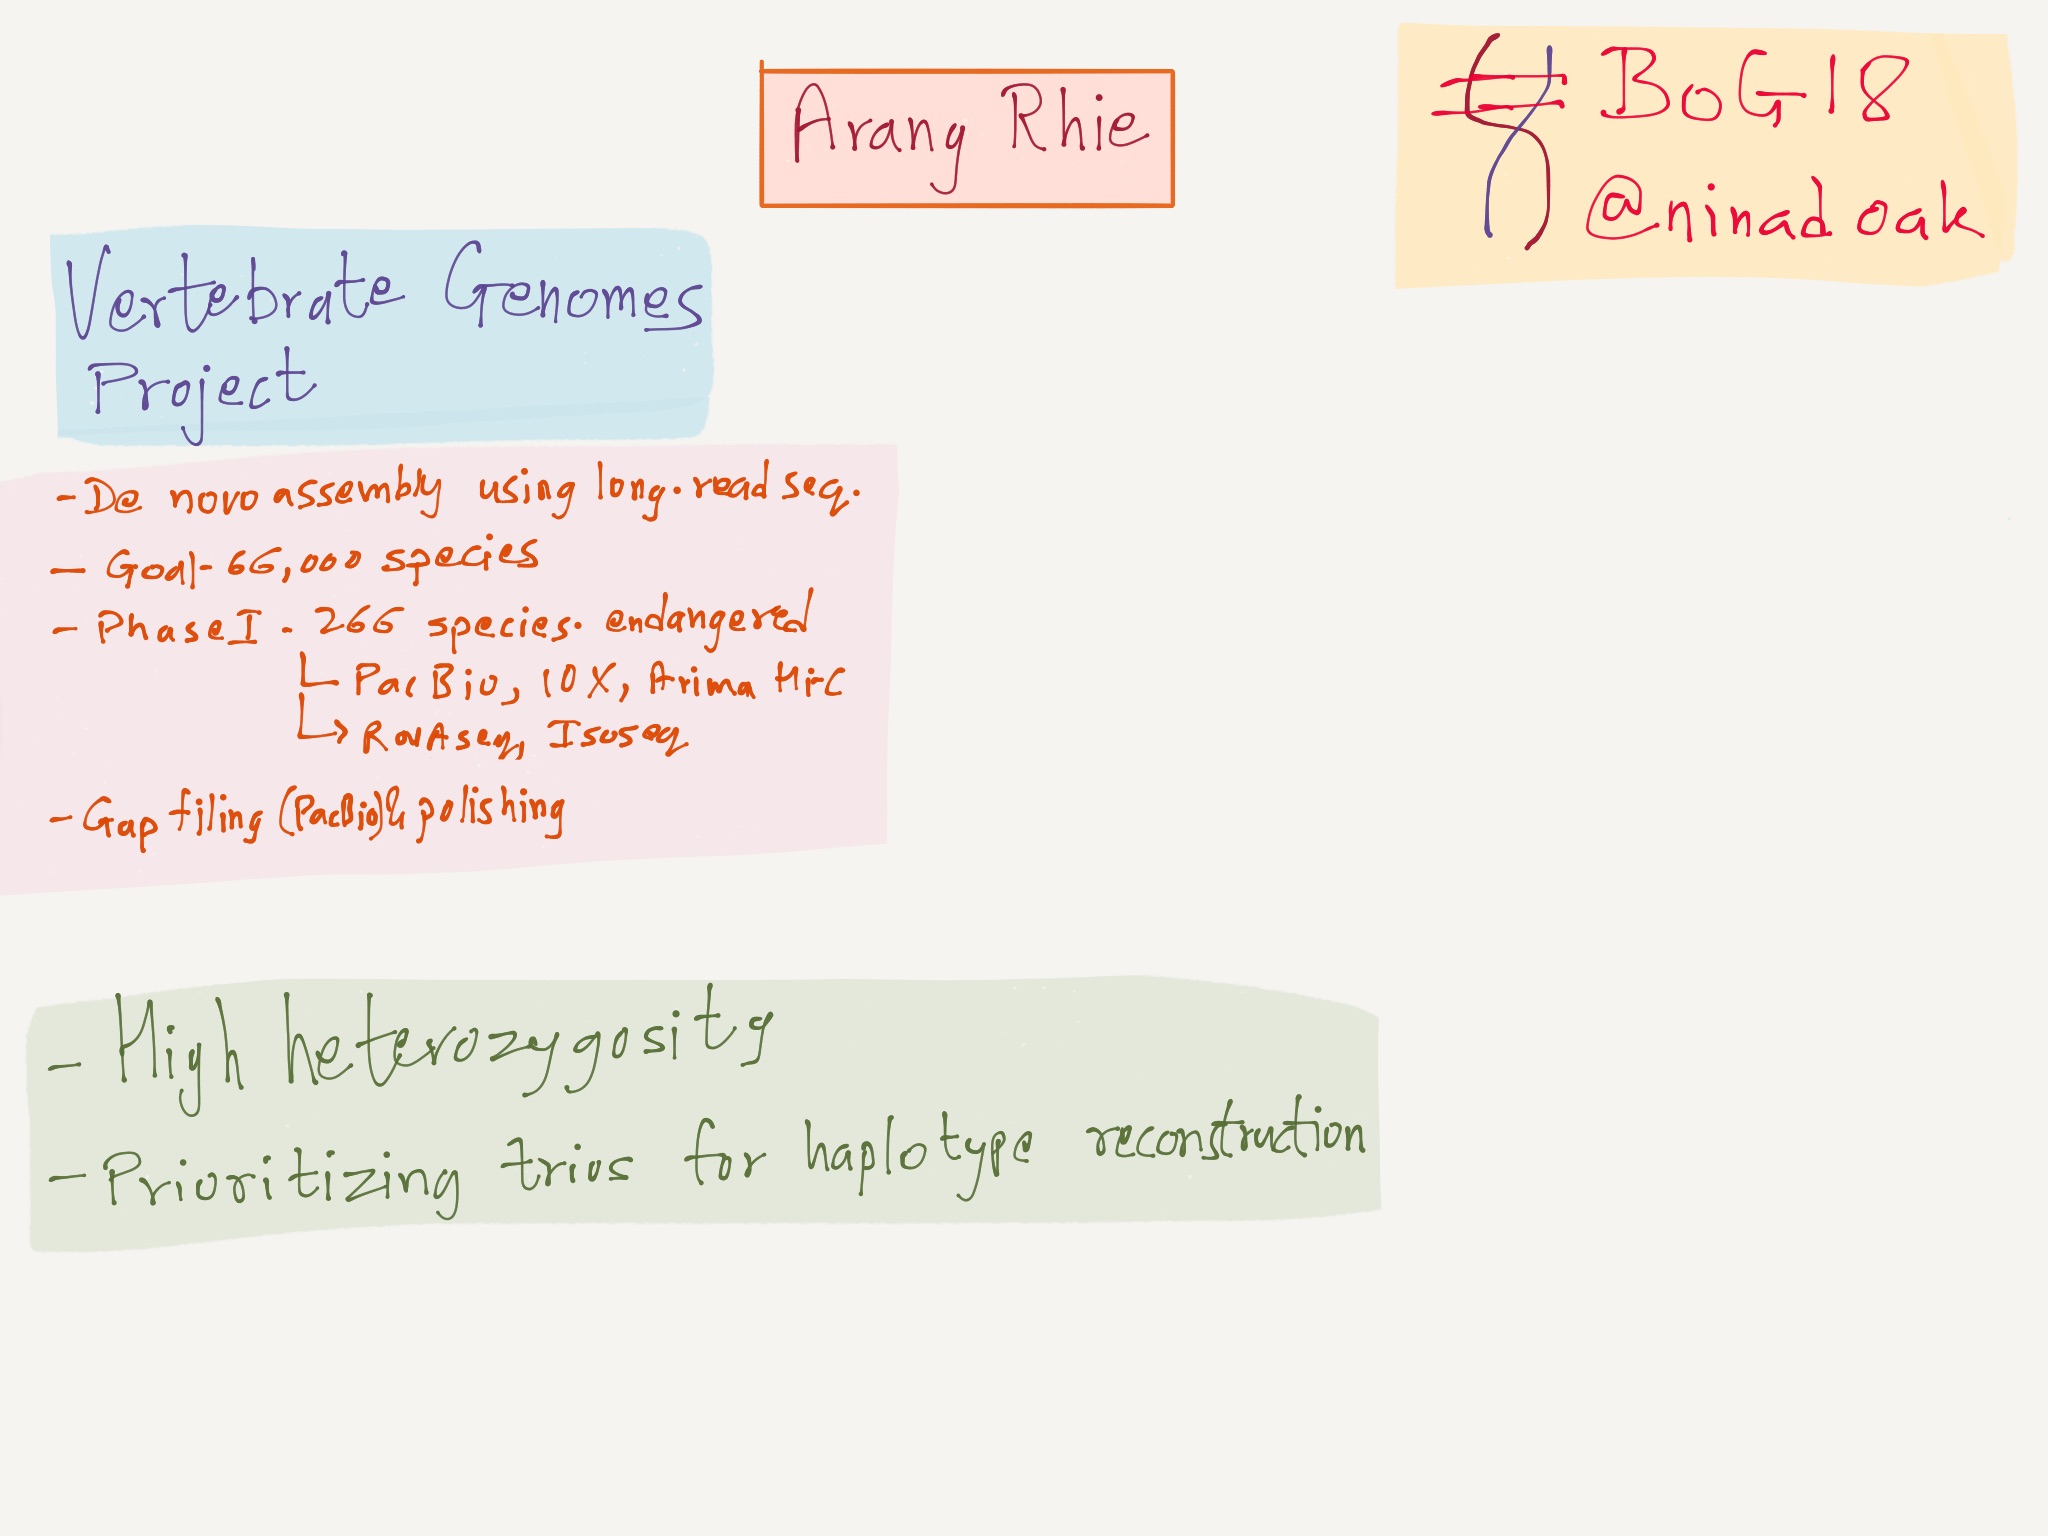 Arang Rhie
# BoG18
@ninadoak
Vertebrate Genomes
Project
- De novo assembly using long.read seq.
- Goal - 66,000 species
- Phase I - 266 species. endangered
PacBio, 10X, Arima Hi-C
RNAseq, Isoseq
- Gap filing (PacBio) & polishing
- High heterozygosity
- Prioritizing trios for haplotype reconstruction